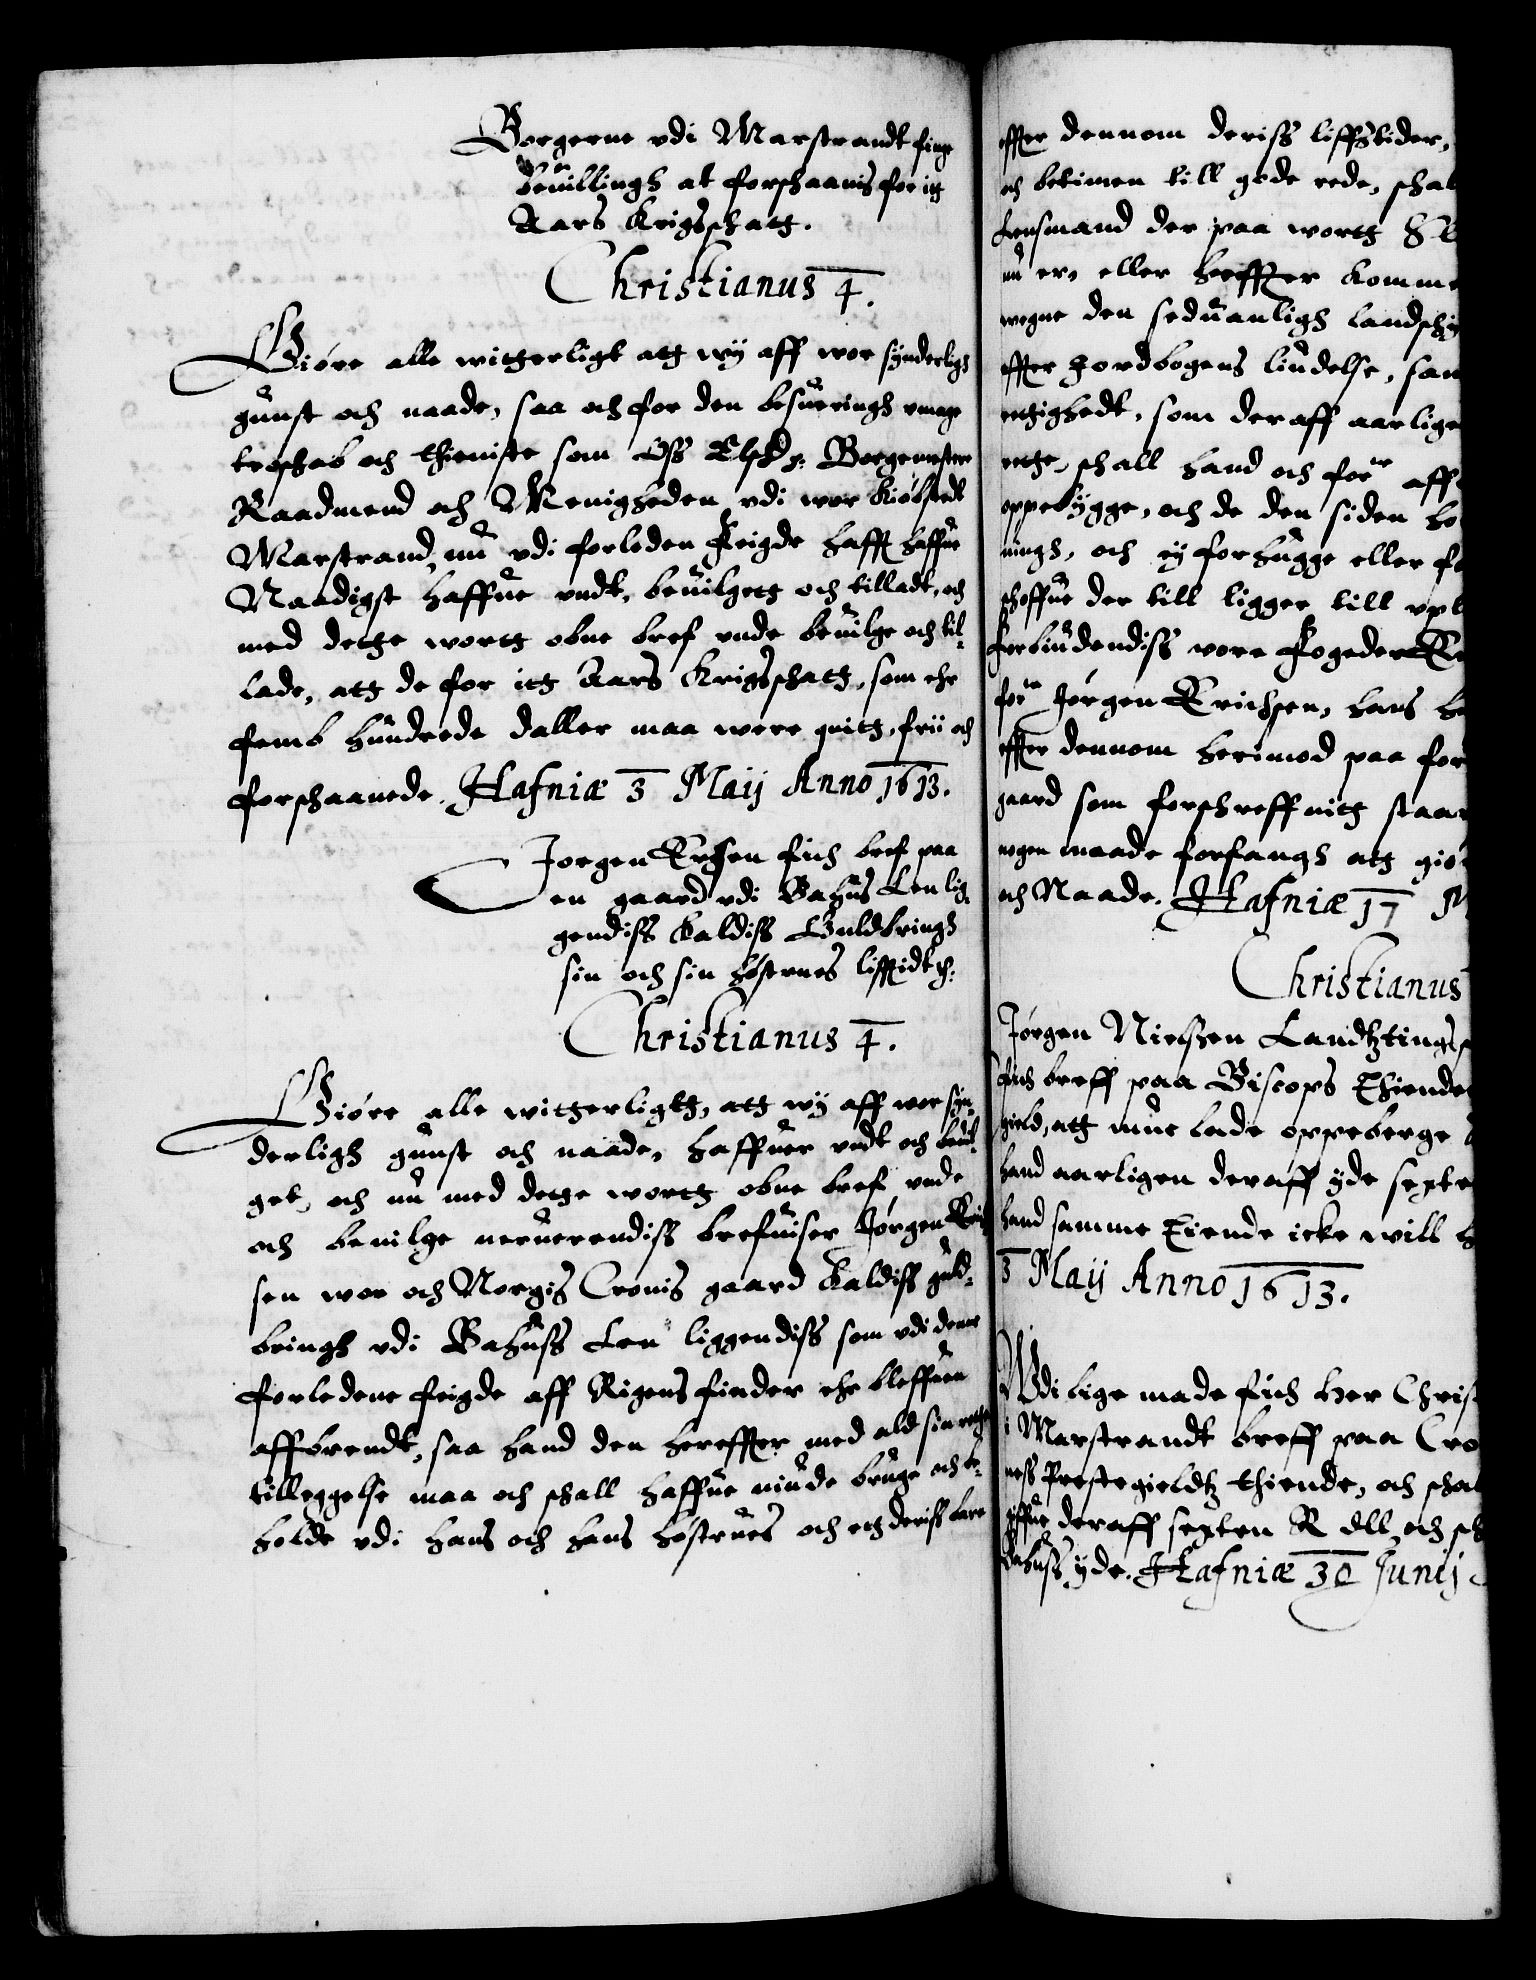 Borgerne vdi Marstrandt finge
beuillingh at forschaanis for itt
Aars Krigsschatt.
Christianus 4.
Giöre alle witterligt att wÿ aff wor sÿnderligh
gunst och naade, saa och for den besueringh vmage
troschab och thieniste som Oss Elsch: Borgemestere
Raadmend och Menigheden vdi wor Kiöbstedt
Marstrand nu vdi forleden Feigde hafft haffue
Naadigst haffue vndt, beuilgett och tilladt, och
med dette wortt obne bref vnde beuilge och til-
lade, att de for itt Aars Krigsschatt, som ehr
femb hundrede daller maa were quitt, frii och
forschaanede. Hafniæ 3 Maij Anno 1613.
Jorgen Ersen fich bref paa
en gaard vdi Bahus Len lig-
gendiss Kaldiss Guldbringh
sin och sin höstrues liffstidt ec:
Christianus 4.
Giöre alle witterligtt, att wÿ aff wor sÿn-
derligh gunst och naade, haffuer vndt och beuil-
get, och nu med dette wortt obne bref vnde
och beuilge neruerendiss brefuiser Jörgen Erich
sen wor och Norgis Cronis gaard Kaldiss guld-
bringh vdi Bahuss Len liggendiss som vdi denne
forledene feigde aff Rigens fiender ehr bleffuen
affbrendt, saa hand den hereffter med ald sin rette
tilleggelse maa och schall haffue niude bruge och be-
holde vdi hans och hans höstrues och ett deriss barn
effter dennom deriss liffstider,
och betimen till gode rede, schal
Lensmand der paa wortt
nu er, eller hereffter komme
wegne den seduanligh landschÿ
effter Jordbogens liudelse, sam
rettighedt, som deraff aarlige
rette, schall hand och forne aff
oppebÿgge, och de den siden ho
ningh, och eÿ forhugge eller fo
schoffue der till ligger till vpl
Forbiudendiss vore Fogeder
forne Jörgen Erichsen, hans hö
effter dennom herimod paa for
gaard som forschreffuitt staar
nogen maade forfangh att giör
och Naade. Hafniæ 17 M
Christianus
Jörgen Nielssen Landtztings
fich breff paa Biscops Thiende
gield, att mue lade oppeberge
hand aarligen deraff ÿde septen
hand samme Tiende icke will
3 Maij Anno 1613.
Vdi lige made fich Her Chris
i Marstrandt breff paa Cro
ness Prestegieldtz thiende, och schal
giffue deraff septen R dll, och sch
Bahuss ÿde. Hafniæ 30 Junij